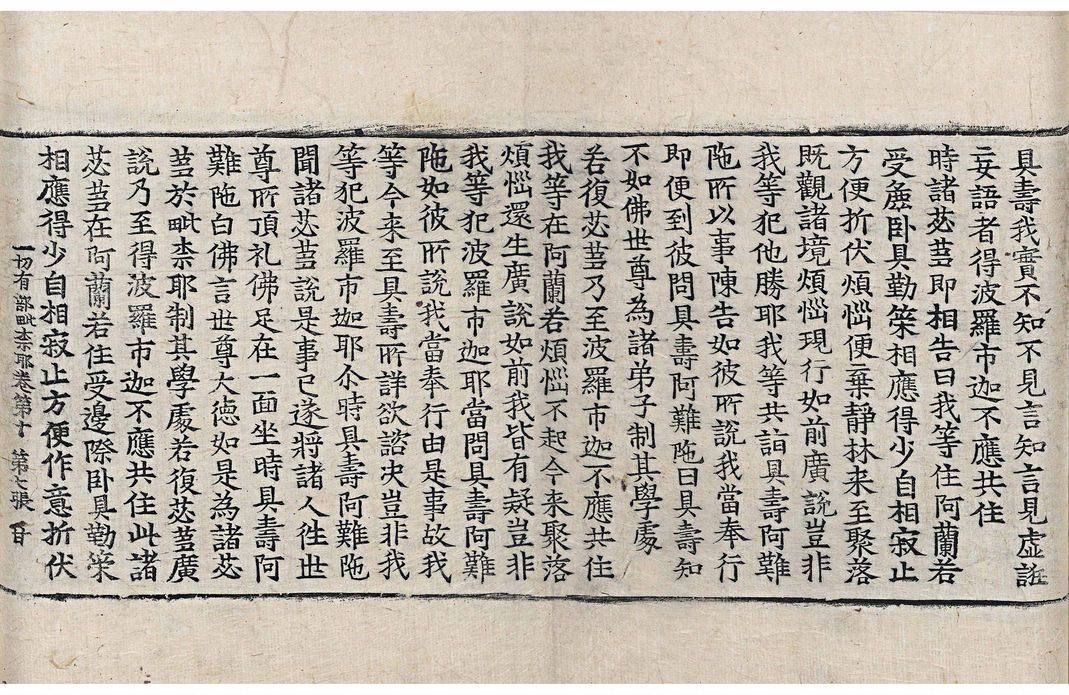 具壽我實不知不見言知言見虛誑
妄語者得波羅市迦不應共住
時諸苾芻即相告曰我等住阿蘭若
受麁卧具勤策相應得少自相寂止
方便折伏煩惱便棄静林来至聚落
既觀諸境煩惱現行如前廣說豈非
我等犯他勝耶我等共詣具壽阿難
陁所以事陳告如彼所說我當奉行
即便到彼問具壽阿難陁曰具壽知
不如佛世尊為諸弟子制其學處
若復苾芻乃至波羅市迦不應共住
我等在阿蘭若煩惱不起今来聚落
煩惱還生廣說如前我皆有疑豈非
我等犯波羅市迦耶當問具壽阿難
陁如彼所說我當奉行由是事故我
等今来至具壽所詳欲諮决豈非我
等犯波羅市迦耶尒時具壽阿難陁
聞諸苾芻說是事已遂將諸人徃世
尊所頂礼佛足在一面坐時具壽阿
難陁白佛言世尊大德如是為諸苾
芻於毗柰耶制其學處若復苾芻廣
說乃至得波羅市迦不應共住此諸
苾芻在阿蘭若住受邊際卧具勤策
一切有部毗柰耶卷第十 第七張 甘
相應得少自相寂止方便作意折伏